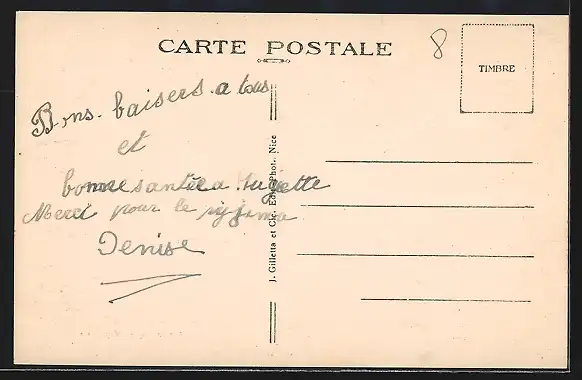 CARTE POSTALE
8
TIMBRE
Bons baisers a tous
et
bonne santée a Hugette
Merci pour le pyjama
Denise
J. Gilletta et Cie, Edit. Phot., Nice